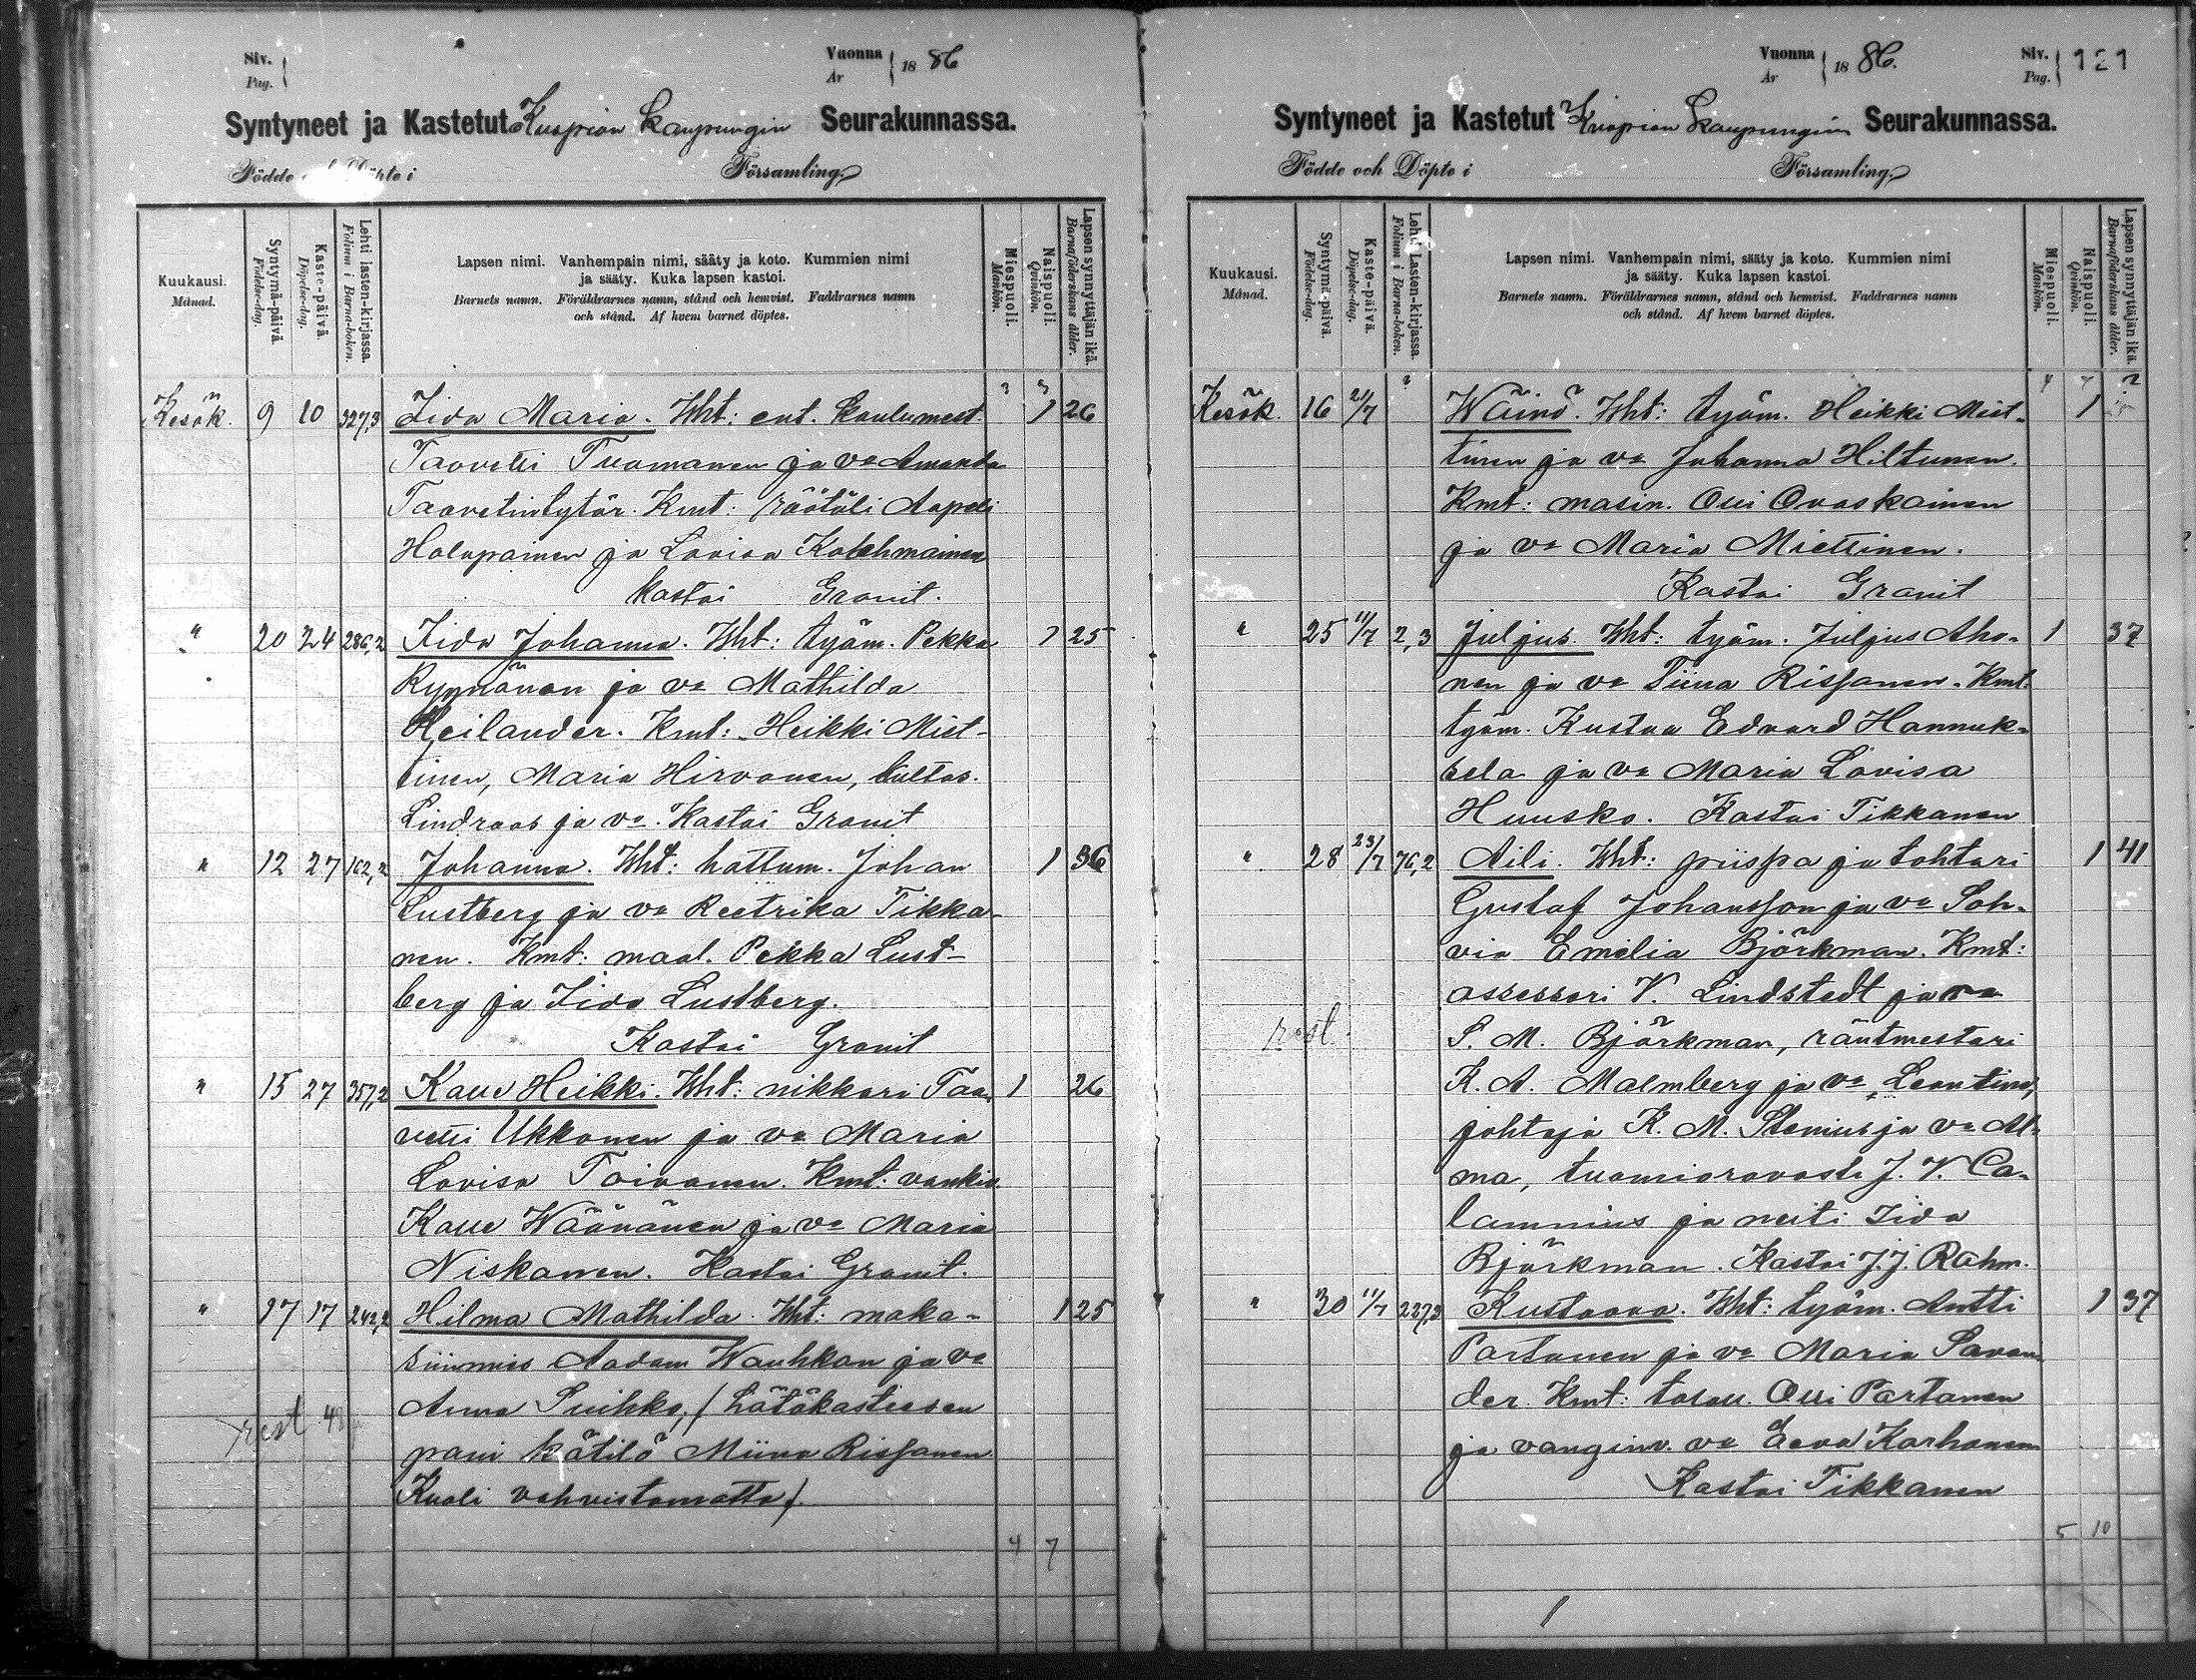 Siv.
Pag.
Vuonna
Ar
18 86
Syntyneet ja Kastetut Kuopion kaupungin Seurakunnassa.
Födde Döpte i Församling.
Kuukausi.
Månad.
Syntymä-päivä.
Födelse-dag.
Kaste-päivä.
Döpelse-dag.
Lehti lasten-kirjassa.
Folium i Barna-boken.
Lapsen nimi. Vanhempain nimi, sääty ja koto. Kummien nimi
ja sääty. Kuka lapsen kastoi.
Barnets namn. Föräldrarnes namn, stånd och hemvist. Faddrarnes namn
och stånd. Af hvem barnet döptes.
Miespuoli.
Mankön.
Naispuoli.
Qvinkön.
Lapsen synnyttäjän ikä.
Barnaföderskans ålder.
3 3
Kesäk. 9 10 327,3 Iida Maria. Wht: ent. koulumest. 1 26
Taavetti Tuomanen ja va Amanda
Taavetintytär. Kmt: räätäli Aapeli
Holopainen ja Lovisa Kolehmainen
kastoi Granit.
" 20 24 286,2 Iida Johanna. Wht: työm. Pekka 1 25
Rynnänen ja va Mathilda
Heilander. Kmt: Heikki Miet-
tinen, Maria Hirvonen, kultas.
Lindroos ja va. Kastoi Granit
" 12 27 162,2 Johanna. Wht: hattum. Johan 1 36
Lustberg ja va Reetrika Tikka-
nen. Kmt: maal. Pekka Lust-
berg ja Iida Lustberg.
Kastoi Granit
" 15 27 357,2 Kalle Heikki. Wht: nikkari Taa- 1 26
vetti Ukkonen ja va Maria
Lovisa Toivanen. Kmt: vankiv.
Kalle Wäänänen ja va Maria
Niskanen. Kastoi Granit.
" 17 17 242,2 Hilma Mathilda. Wht: maka- 1 25
siinmies Aadam Wauhkon ja va
Anna Suihko. (Hätäkasteesen
pani kätilö Miina Rissanen.
Kuoli vahvistamatta).
rest
4 7
Vuonna
Ar
18 86.
Siv.
Pag.
121
Syntyneet ja Kastetut Kuopion kaupungin Seurakunnassa.
Födde och Döpte i Församling.
Kuukausi.
Månad.
Syntymä-päivä.
Födelse-dag.
Kaste-päivä.
Döpelse-dag.
Lehti Lasten-kirjassa.
Folium i Barna-boken.
Lapsen nimi. Vanhempain nimi, sääty ja koto. Kummien nimi
ja sääty. Kuka lapsen kastoi.
Barnets namn. Föräldrarnes namn, stånd och hemvist. Faddrarnes namn
och stånd. Af hvem barnet döptes.
Miespuoli.
Mankön.
Naispuoli.
Qvinkön.
Lapsen synnyttäjän ikä.
Barnaföderskans ålder.
4 7 ?
Kesäk. 16 21/7 ? Wäinö. Wht: työm. Heikki Miet- 1
tinen ja va Johanna Hiltunen.
Kmt: masin. Olli Ovaskainen
ja va Maria Miettinen.
Kastoi Granit
" 25 11/7 2,3 Juljus. Wht: työm. Juljus Aho- 1 37
nen ja va Tiina Rissanen. Kmt:
työm. Kustaa Edvard Hannuk-
sela ja va Maria Lovisa
Huusko. Kastoi Tikkanen
" 28 23/7 76,2 Aili. Wht: piispa ja tohtori 1 41
Gustaf Johansson ja va Soh-
via Emelia Björkman. Kmt:
assessori V. Lindstedt ja va
rest. S. M. Björkman, räntmestari
K. A. Malmberg ja va Leontine,
johtaja K. M. Stenius ja va Al-
ma, tuomiorovasti J. V. Ca-
lamnius ja neiti Iida
Björkman. Kastoi J. J. Rahm.
" 30 11/7 237,3 Kustaava. Wht: työm. Antti 1 37
Partanen ja va Maria Savan-
der. Kmt: taloll. Olli Partanen
ja vanginv. va Eeva Karhonen
Kastoi Tikkanen
5 10